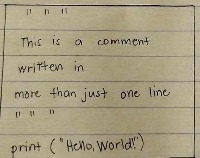 " " "
This is a comment
written in
more than just one line
" " "
print ("Hello, World!")